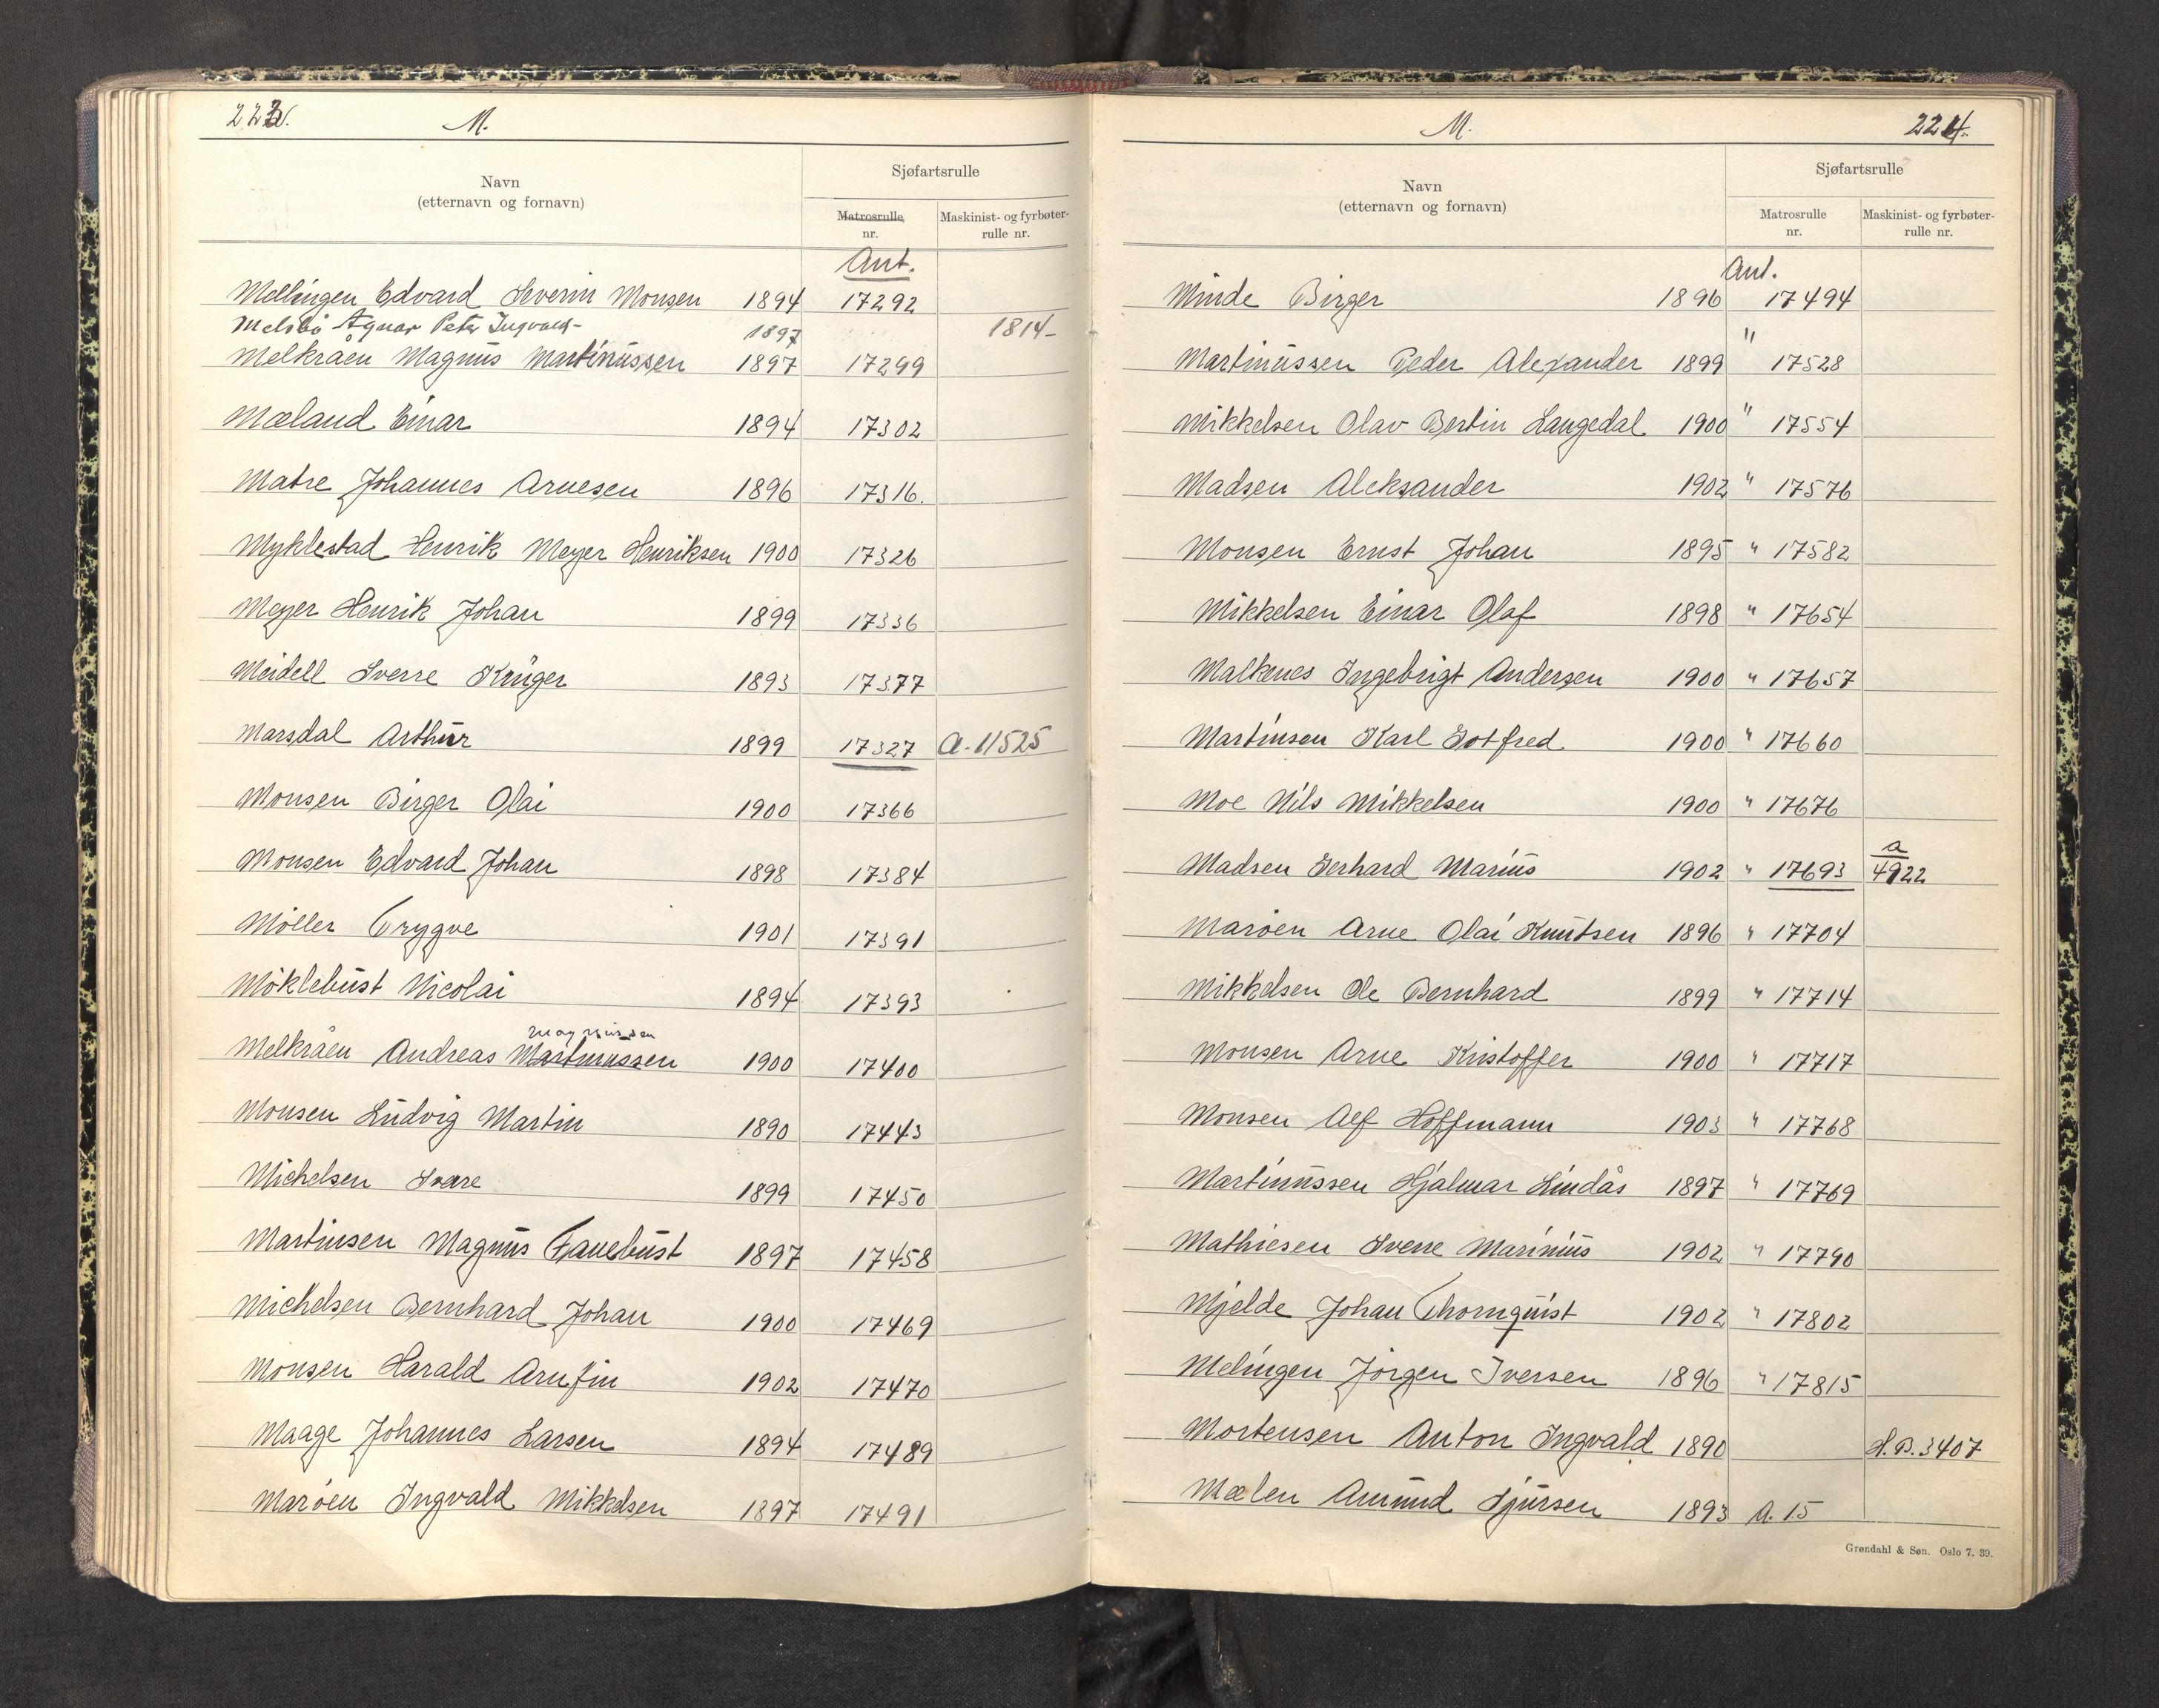 223.
M.
Navn
(etternavn og fornavn)
Sjøfartsrulle
Matrosrulle
nr.
Maskinist- og fyrbøter-
rulle nr.
Ant.
Mellingen Edvard Severin Monsen 1894 17292
Melsbø Agnar Peter Ingvald- 1897 1814-
Melkråen Magnus Martinussen 1897 17299
Mæland Einar 1894 17302
Matre Johannes Arnesen 1896 17316.
Myklestad Henrik Meyer Henriksen 1900 17326
Meyer Henrik Johan 1899 17336
Meidell Sverre Krüger 1893 17377
Marsdal Arthur 1899 17327 a-11525
Monsen Birger Olai 1900 17366
Monsen Edvard Johan 1898 17384
Møller Trygve 1901 17391
Møklebust Nicolai 1894 17393
Magnussen
Melkråen Andreas Martinussen 1900 17400
Monsen Ludvig Martin 1890 17443
Michelsen Sverre 1899 17450
Martinsen Magnus Tauebust 1897 17458
Michelsen Bernhard Johan 1900 17469
Monsen Harald Arnfin 1902 17470
Maage Johannes Larsen 1894 17489
Marøen Ingvald Mikkelsen 1897 17491
M.
224.
Navn
(etternavn og fornavn)
Sjøfartsrulle
Matrosrulle
nr.
Maskinist- og fyrbøter-
rulle nr.
Ant.
Minde Birger 1896 17494
Martinussen Peder Alexander 1899 " 17528
Mikkelsen Olav Bertin Langedal 1900 " 17554
Madsen Aleksander 1902 " 17576
Monsen Ernst Johan 1895 " 17582
Mikkelsen Einar Olaf 1898 " 17654
Malkenes Ingebrigt Andersen 1900 " 17657
Martinsen Karl Gotfred 1900 " 17660
Moe Nils Mikkelsen 1900 " 17676
a
Madsen Gerhard Marius 1902 " 17693 4922
Marøen Arne Olai Knutsen 1896 " 17704
Mikkelsen Ole Bernhard 1899 " 17714
Monsen Arne Kristoffer 1900 " 17717
Monsen Alf Hoffmann 1903 " 17768
Martinussen Hjalmar Lindås 1897 " 17769
Mathiesen Sverre Marinius 1902 " 17790
Mjelde Johan Thornquist 1902 " 17802
Melingen Jørgen Iversen 1896 " 17815
Mortensen Anton Ingvald 1890 H.B.3407
Mælen Amund Sjursen 1893 A. 15
Grøndahl & Søn. Oslo 7. 39.